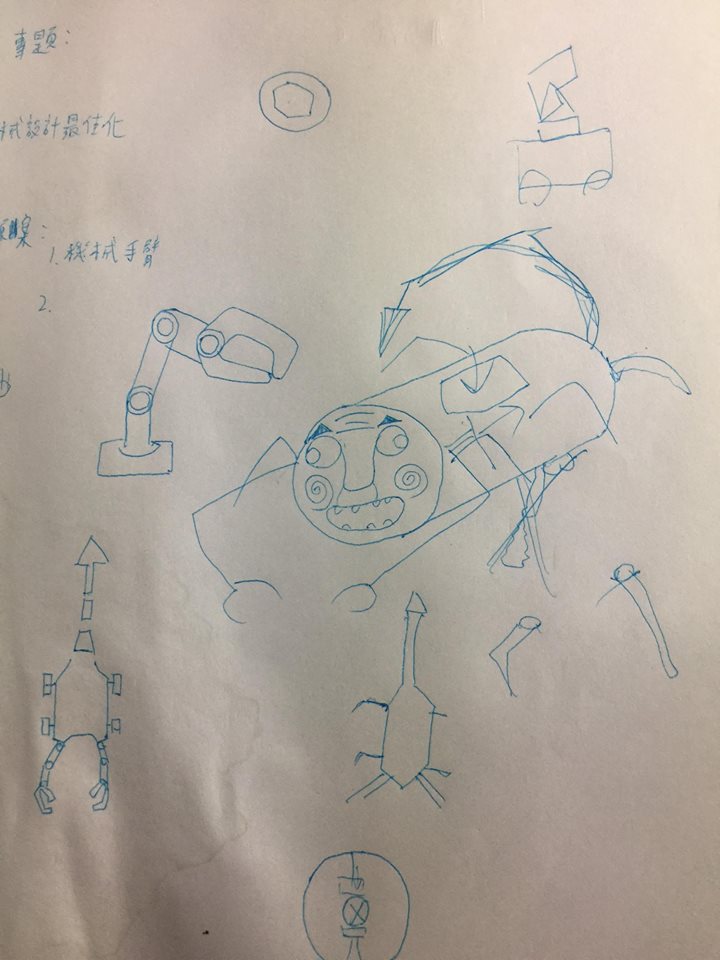 專題:
械設計最佳化
1. 機械手臂
2.